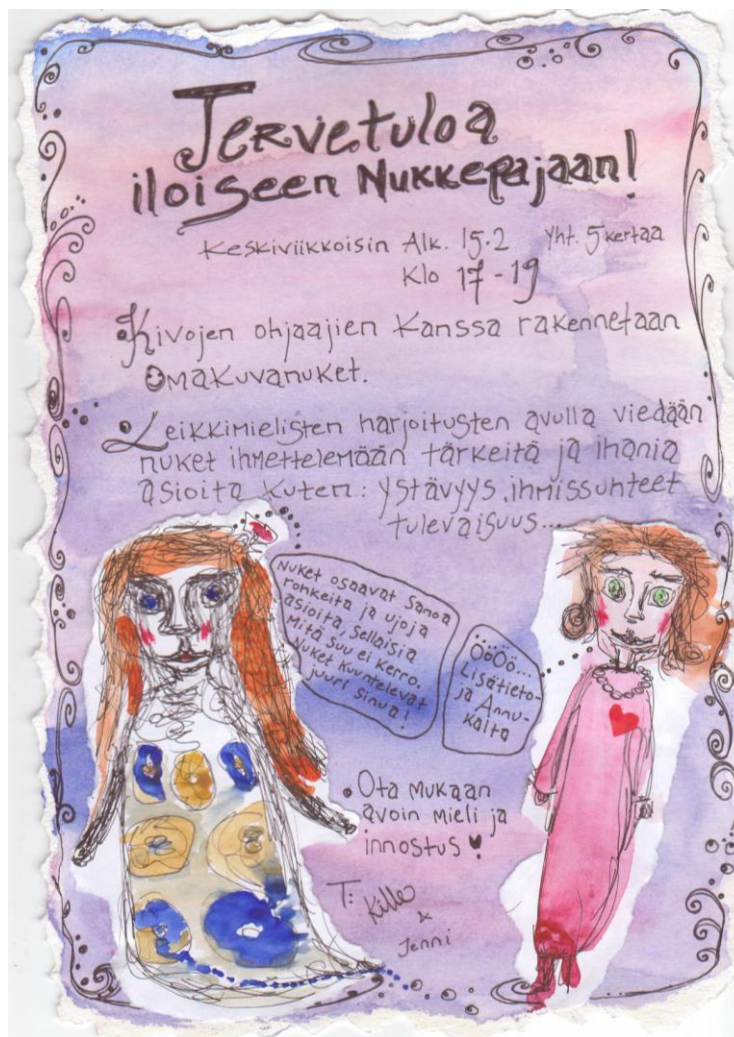 Tervetuloa
iloiseen Nukkepajaan!
Keskiviikkoisin Alk. 15.2 Yht. 5 kertaa
Klo 17-19
Kivojen ohjaajien kanssa rakennetaan
Omakuvanuket.
Leikkimielisten harjoitusten avulla viedään
nuket ihmettelemään tärkeitä ja ihania
asioita kuten: ystävyys, ihmissuhteet
tulevaisuus...
Nuket osaavat sanoa
rohkeita ja ujoja
asioita, sellaisia
mitä suu ei kerro.
Nuket kuuntelevat
juuri sinua!
ÖöÖö...
Lisätieto-
ja Annu-
kalta
Ota mukaan
avoin mieli ja
innostus
T: Kille
&
Jenni